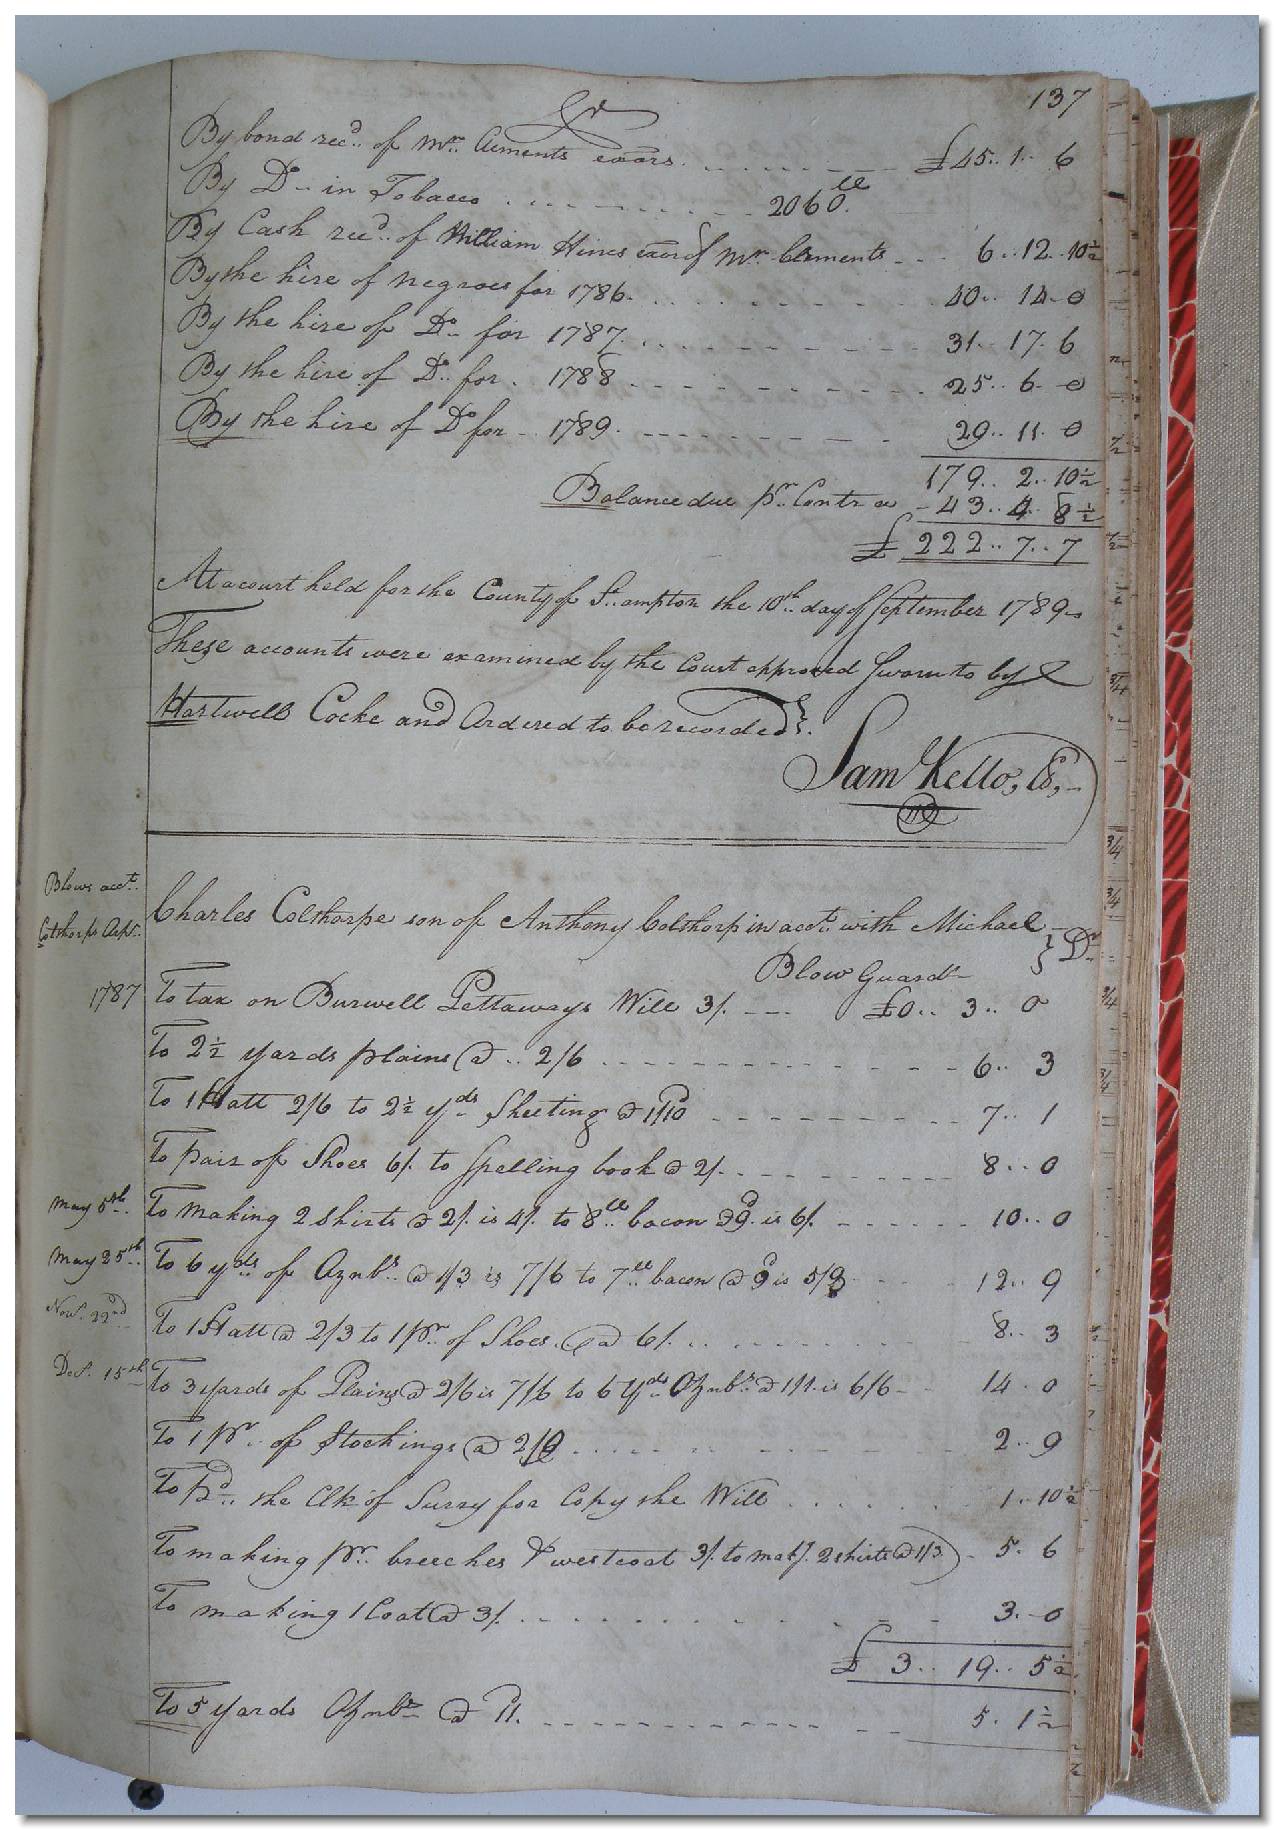 137
Cr
By bond recd. of Mr. Clements exors. £45.. 1.. 6
By Do. in Tobacco 2060 lb.
By Cash recd. of William Hines exor of Mr. Clements 6.. 12.. 10½
By the hire of negroes for 1786. 40.. 14.. 0
By the hire of Do. for 1787. 31.. 17.. 6
By the hire of Do. for. 1788 25.. 6.. 0
By the hire of Do. for 1789. 29.. 11.. 0
179.. 2.. 10½
Balance due pr. Contra 43.. 4.. 8½
£ 222.. 7.. 7
At a court held for the County of St.ampton the 10th. day of September 1789
These accounts were examined by the Court approved Sworn to by
Hartwell Cocke and Ordered to be recorded}.
Sam Kello, Ck,
Blows acct.
Colthorps
Charles Colthorpe son of Anthony Colthorp in acct. with Michael } Dr
Blow Guardn
1787 To tax on Burwell Pettaways Will 3/. £0.. 3.. 0
To 2½ yards plains @ .. 2/6 6.. 3
To 1 Hatt 2/6 to 2½ yds Sheeting @ 1/10 7.. 1
To pair of Shoes 6/. to Spelling book @ 2/. 8.. 0
May 5th. To making 2 Shirts @ 2/. is 4/. to 8 lb. bacon @ 9d. is 6/. 10.. 0
May 25th. To 6 yds of Oznbs. @ 1/3 is 7/6 to 7 lb. bacon @ 9d is 5/3 12.. 9
Nov. 22nd To 1 Hatt @ 2/3 to 1 pr. of Shoes @ 6/. 8.. 3
Der. 15th To 3 yards of Plains @ 2/6 is 7/6 to 6 yds Oznbs. @ 1/1. is 6/6 14.. 0
To 1 pr. of Stockings @ 2/9 2.. 9
To pd. the Clk of Surry for Copy the Will 1.. 10½
To making pr. breeches & westcoat 3/. to makg. 2 shirts @ 1/3 5.. 6
To making 1 Coat @ 3/. 3.. 0
£ 3.. 19.. 5½
To 5 yards Oznbs @ 5.. 1½